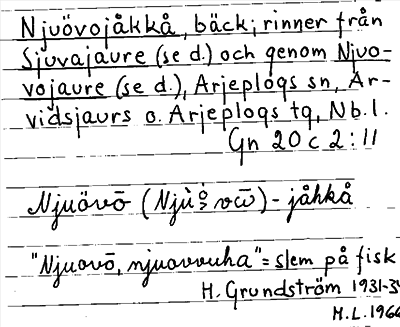 Njuövojåkkå, bäck; rinner från
Sjuvajaure (se d.) och genom Njuo-
vojaure (se d.), Arjeplogs sn, Ar-
vidsjaurs o. Arjeplogs tg, Nb.l.
Gn 20 c 2:11
Njuövō - jåhkå
"Njuovō, njuovvuha" = slem på fisk
H. Grundström 1931-34
H.L. 1966